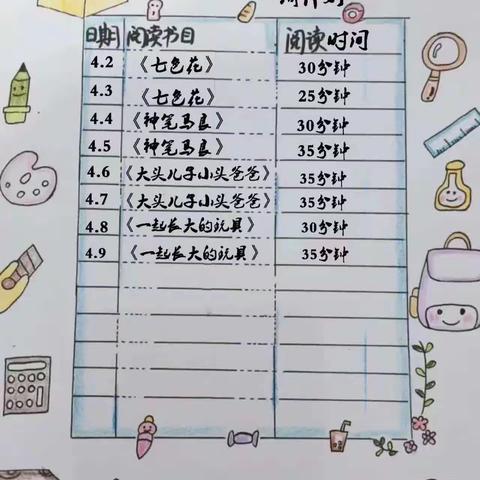 日期 阅读书目 阅读时间
4.2 《七色花》 30分钟
4.3 《七色花》 25分钟
4.4 《神笔马良》 30分钟
4.5 《神笔马良》 35分钟
4.6 《大头儿子小头爸爸》 35分钟
4.7 《大头儿子小头爸爸》 35分钟
4.8 《一起长大的玩具》 30分钟
4.9 《一起长大的玩具》 35分钟